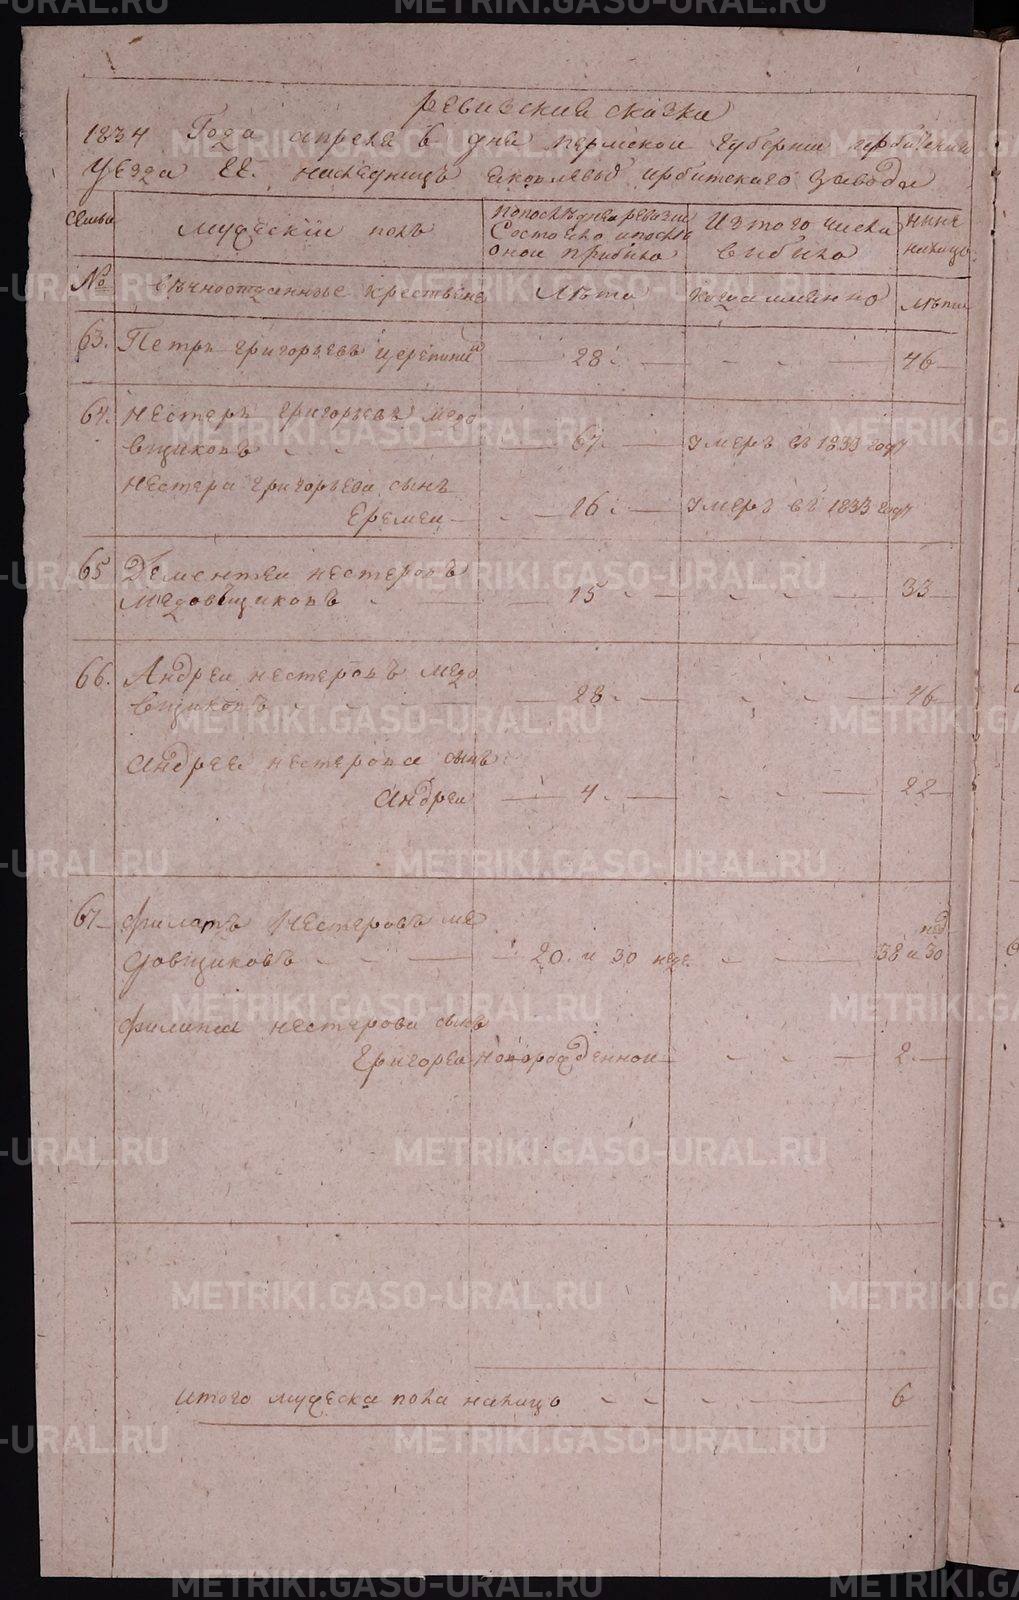 Ревизския сказки
1834 Года апреля 6 дня пермской Губернии ирбитскаго
Уезда ЕЕ. наследницъ яковлевыхъ ирбитскаго завода
семьи
мужескiи полъ
попоследнеи ревизiи
Состояло ипосле
оной прибыло
Изтого числа
выбыло
ныне
налицо
№
вечноотданные крестьяне
Лета
когда имянно
лета
63. Петръ григорьевъ 28. 46
64. нестеръ григорьевъ медо
вщиковъ 67. умеръ въ 1833 году
нестера григорьева сынъ
Еремеи 16. умеръ въ 1833 году
65 Дементеи нестеровъ
медовщиковъ 15 33
66. Андреи нестеровъ медо
вщиковъ 28. 46
андрея нестерова сынъ
андреи 4. 22
67 филатъ Нестеровъ ме
довщиковъ 20. и 30 неде. 38 и 30 нед
филипа нестерова сынъ
григореи новорожденнои 2.
итого мужеска пола налицо 6
METRIKI.GASO-URAL.RU